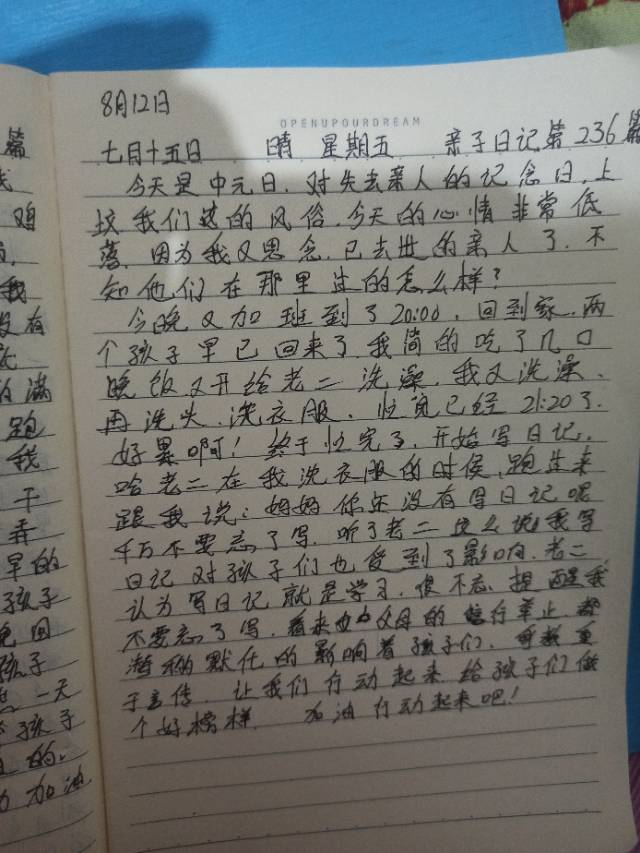 8月12日
OPENUPOURDREAM
七月十五日 晴 星期五 亲子日记第236篇
今天是中元日.对失去亲人的记念日.上
坟我们这的风俗.今天的心情非常低
落.因为我又思念.已去世的亲人了.不
知他们在那里过的怎么样?
今晚又加班到了20:00.回到家.两
个孩子早已回来了.我简的吃了几口
晚饭又开给老二洗澡.我又洗澡、
再洗头.洗衣服.忙完已经21:20了.
好累啊!终于忙完了.开始写日记.
哈老二在我洗衣服的时候,跑过来
跟我说:妈妈你还没有写日记呢
千万不要忘了写.听了老二这么说我写
日记对孩子们也受到了影响.老二
认为写日记就是学习.很不忘.提醒我
不要忘了写.看来父母的言行举止都
潜移默化的影响着孩子们.身教重
于言传.让我们行动起来给孩子们做
个好榜样.加油行动起来吧!
篇
鸡
我
没有
满
跑
我
干
弄
早的
孩子
孩子
一天
孩子
的.
加油